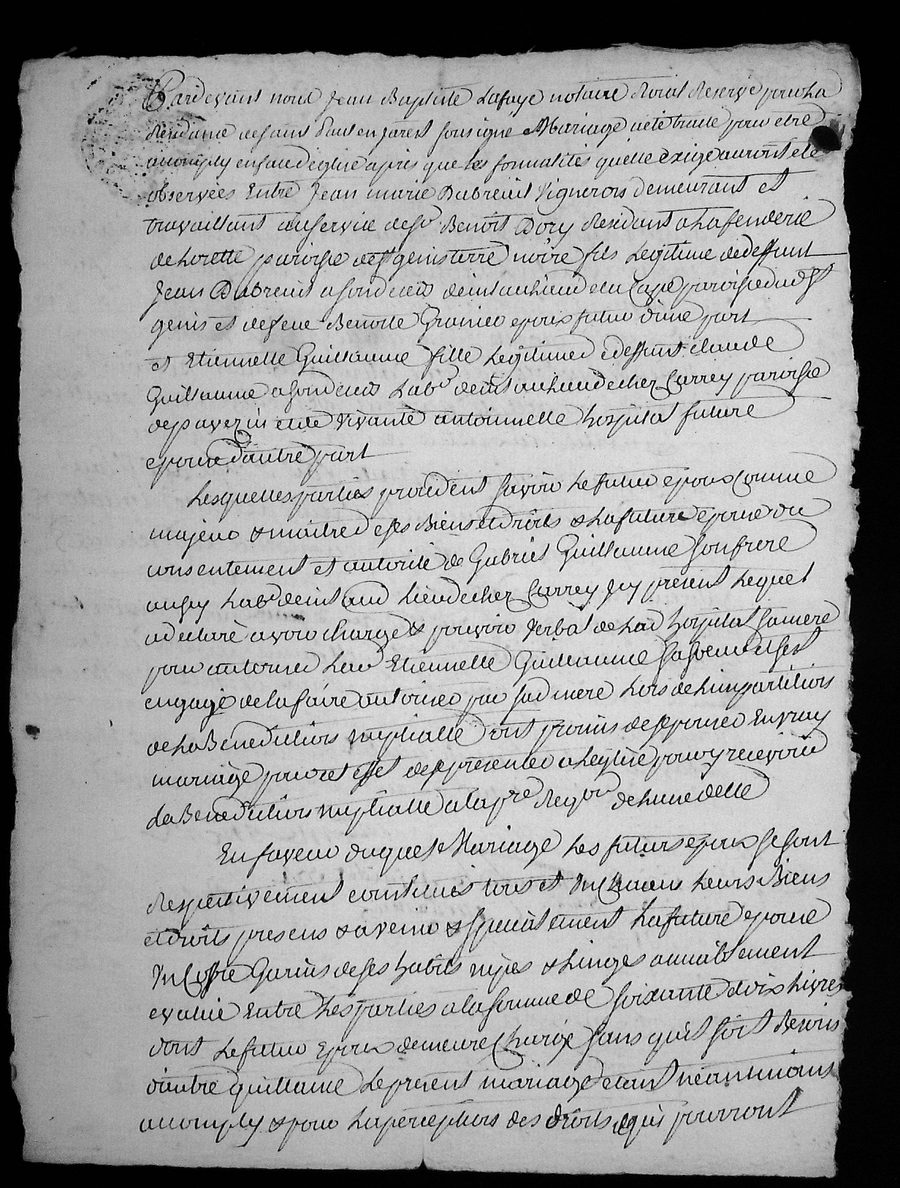 Pardevant nous Jean Baptiste Lafaye notaire Roial Reservé pour La
Residance de saint Paul en Jarest soussigné Mariage a eté traité pour etre
accomply en face d'eglise apres que Les formalités quelle exige auront eté
observées Entre Jean marie Dubreuil Vigneron demeurant et
travaillant au service de sr Benoit Dory Residant a La fenderie
de Lorette paroisse de st genis terre noire fils Legitime de deffunt
Jean Dubreuil a son deces paroisse dud st
genis et de feue Benoite Granier epoux futur d'une part
et Etiennette Guillaume fille Legitime de deffunt claude
Guillaume a son deces Labr demt au lieu de chez Carrey paroisse
de pavezin et de vivante antoinette hospital future
epouse d'autre part
Lesquelles parties procedent savoir Le futur epoux Comme
majeur & maitre de ses Biens et droits & La future epouse du
consentement et autorité de Gabriel Guillaume son frere
aussy Labr demt aud Lieu de chez Carrey Icy present Lequel
a declaré avoir charge & pouvoir verbal de Lad hospital sa mere
pour autoriser Lad Etiennette Guillaume sa soeur et s'est
engagé de la faire autoriser par sad mere Lors de L'impartition
de La Benediction nuptialle ont promis de s'epouser En vray
mariage pour cet effet de se presenter a L'eglise pour y recevoir
La Benediction nuptialle a la pre Reqon de L'une d'elle
En faveur duquel Mariage Les futurs epoux se sont
Respectivement constitués tous et Un Chacun Leurs Biens
et droits presens & avenir & specialement La future epouse
Un Coffre Garnis de ses habits nipes & Linges amiablement
evalué Entre Les parties a la somme de soixante dix Livres
dont Le futur Epoux demeure Chargé sans qu'il soit Besoin
d'autre quittance Le present mariage etant neantmoins
accomply & pour La perception des droits qui pourront